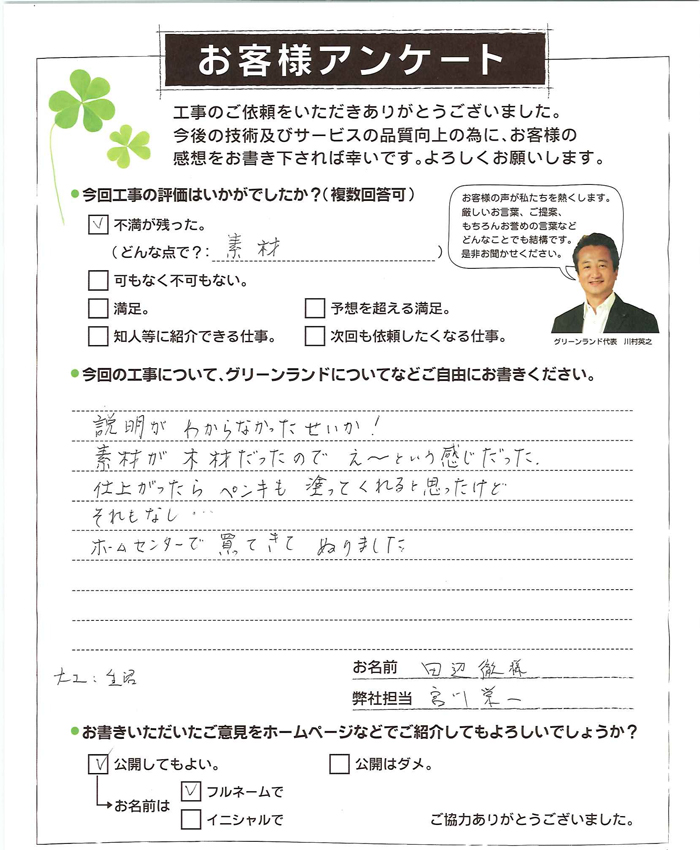 お客様アンケート
工事のご依頼をいただきありがとうございました。
今後の技術及びサービスの品質向上の為に、お客様の
感想をお書き下されば幸いです。よろしくお願いします。
今回工事の評価はいかがでしたか?(複数回答可)
不満が残った。
(どんな点で?: 素材 )
可もなく不可もない。
満足。 予想を超える満足。
知人等に紹介できる仕事。 次回も依頼したくなる仕事。
お客様の声が私たちを熱くします。
厳しいお言葉、ご提案、
もちろんお誉めの言葉など
どんなことでも結構です。
是非お聞かせください。
グリーンランド代表 川村英之
今回の工事について、グリーンランドについてなどご自由にお書きください。
説明が わからなかったせいか!
素材が 木材だったので え〜という感じだった.
仕上がったら ペンキも 塗ってくれると思ったけど
それもなし…
ホームセンターで 買ってきて ぬりました
お名前 田辺 徹 様
大工:
弊社担当 宮川 栄一
お書きいただいたご意見をホームページなどでご紹介してもよろしいでしょうか?
公開してもよい。 公開はダメ。
お名前は フルネームで
イニシャルで
ご協力ありがとうございました。